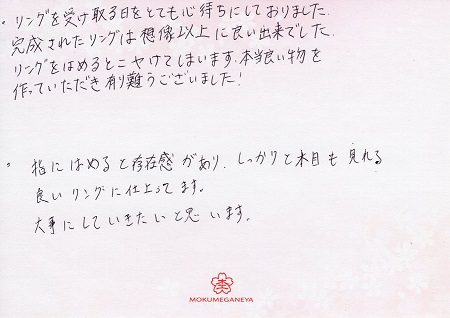 ・リングを受け取る日をとても心待ちにしておりました.
完成されたリングは想像以上に良い出来でした.
リングをはめるとニヤけてしまいます.本当良い物を
作っていただき有り難うございました!
。指にはめると存在感があり.しっかりと木目も見れる
良いリングに仕上ってます。
大事にしていきたいと思います。
MOKUMEGANEYA